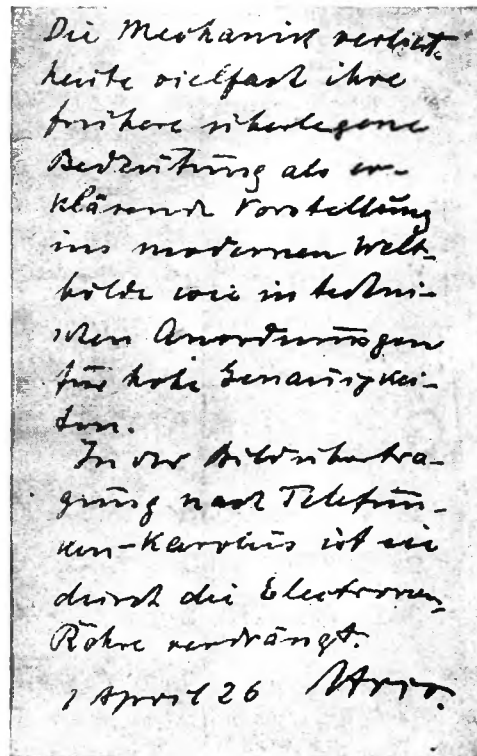 Die Mechanik verliert
heute vielfach ihre
frühere überlegene
Bedeutung als er-
klärende Vorstellung
im modernen Welt-
bilde wie in techni-
schen Anordnungen
für hohe Genauigkei-
ten.
In der Bildübertra-
gung nach Telefun-
ken-Karolus ist sie
durch die Electronen-
Röhre verdrängt.
1 April 26 Arco.